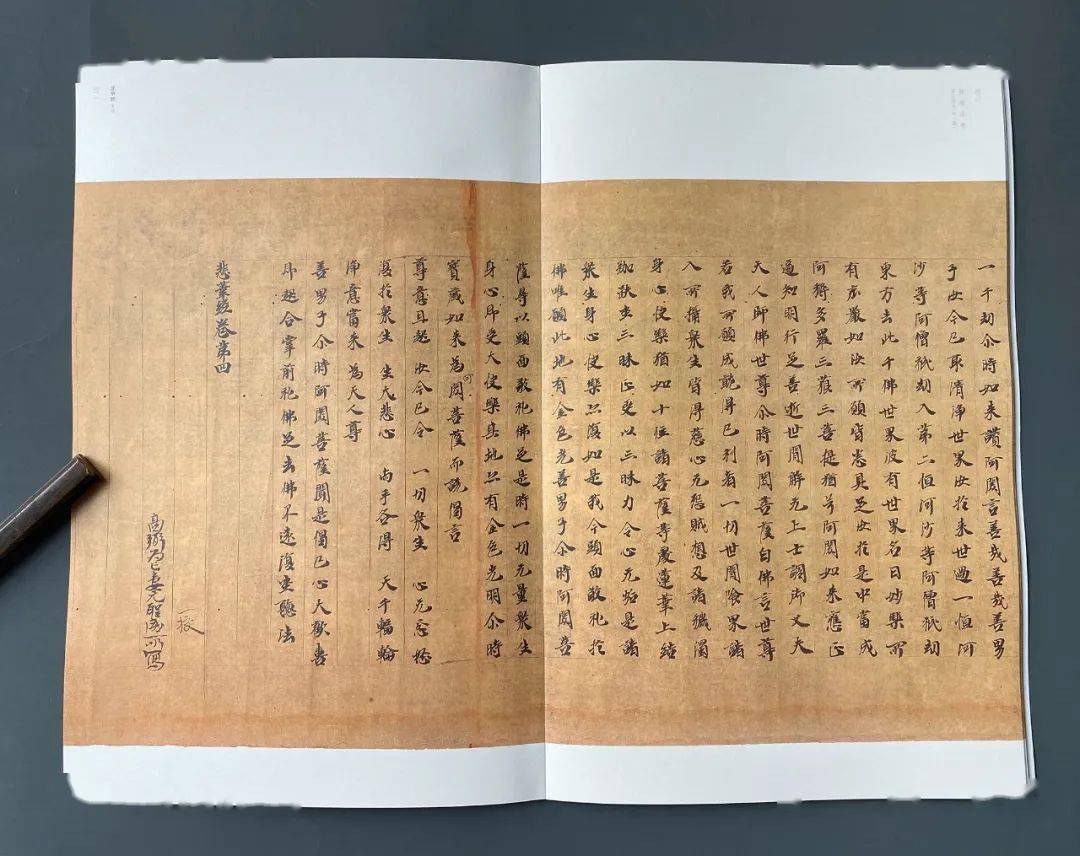 一千劫尒時如來讚阿閦言善哉善哉善男
子汝今已取清淨世界汝於來世過一恒河
沙等阿僧祇劫入第二恒河沙等阿僧祇劫
東方去此千佛世界彼有世界名曰妙樂所
有庄嚴如汝所願皆悉具足汝於是中當成
阿耨多羅三藐三菩提猶号阿閦如來應正
遍知明行足善逝世間解无上士調御丈夫
天人師佛世尊尒時阿閦菩薩白佛言世尊
若我所願成就得己利者一切世間陰界諸
入所攝眾生皆得慈心无怨賊想及諸穢濁
身心快樂猶如十住諸菩薩等處蓮華上結
跏趺坐三昧正受以三昧力令心无垢是諸
眾生身心快樂亦復如是我今頭面敬礼於
佛唯願此地有金色光善男子尒時阿閦菩
薩尋以頭面敬礼佛足是時一切无量眾生
身心即受大快樂其地亦有金色光明尒時
寶藏如來為阿閦菩薩而說偈言
尊意且起 汝今已令 一切眾生 心无忿怒
復於眾生 生大悲心 兩手各得 天千輻輪
淨意當來 為天人尊
善男子尒時阿閦菩薩聞是偈已心大歡喜
即起合掌前礼佛足去佛不遠復坐聽法
悲華經卷第四
一校
高弼為亡妻元聖威所寫